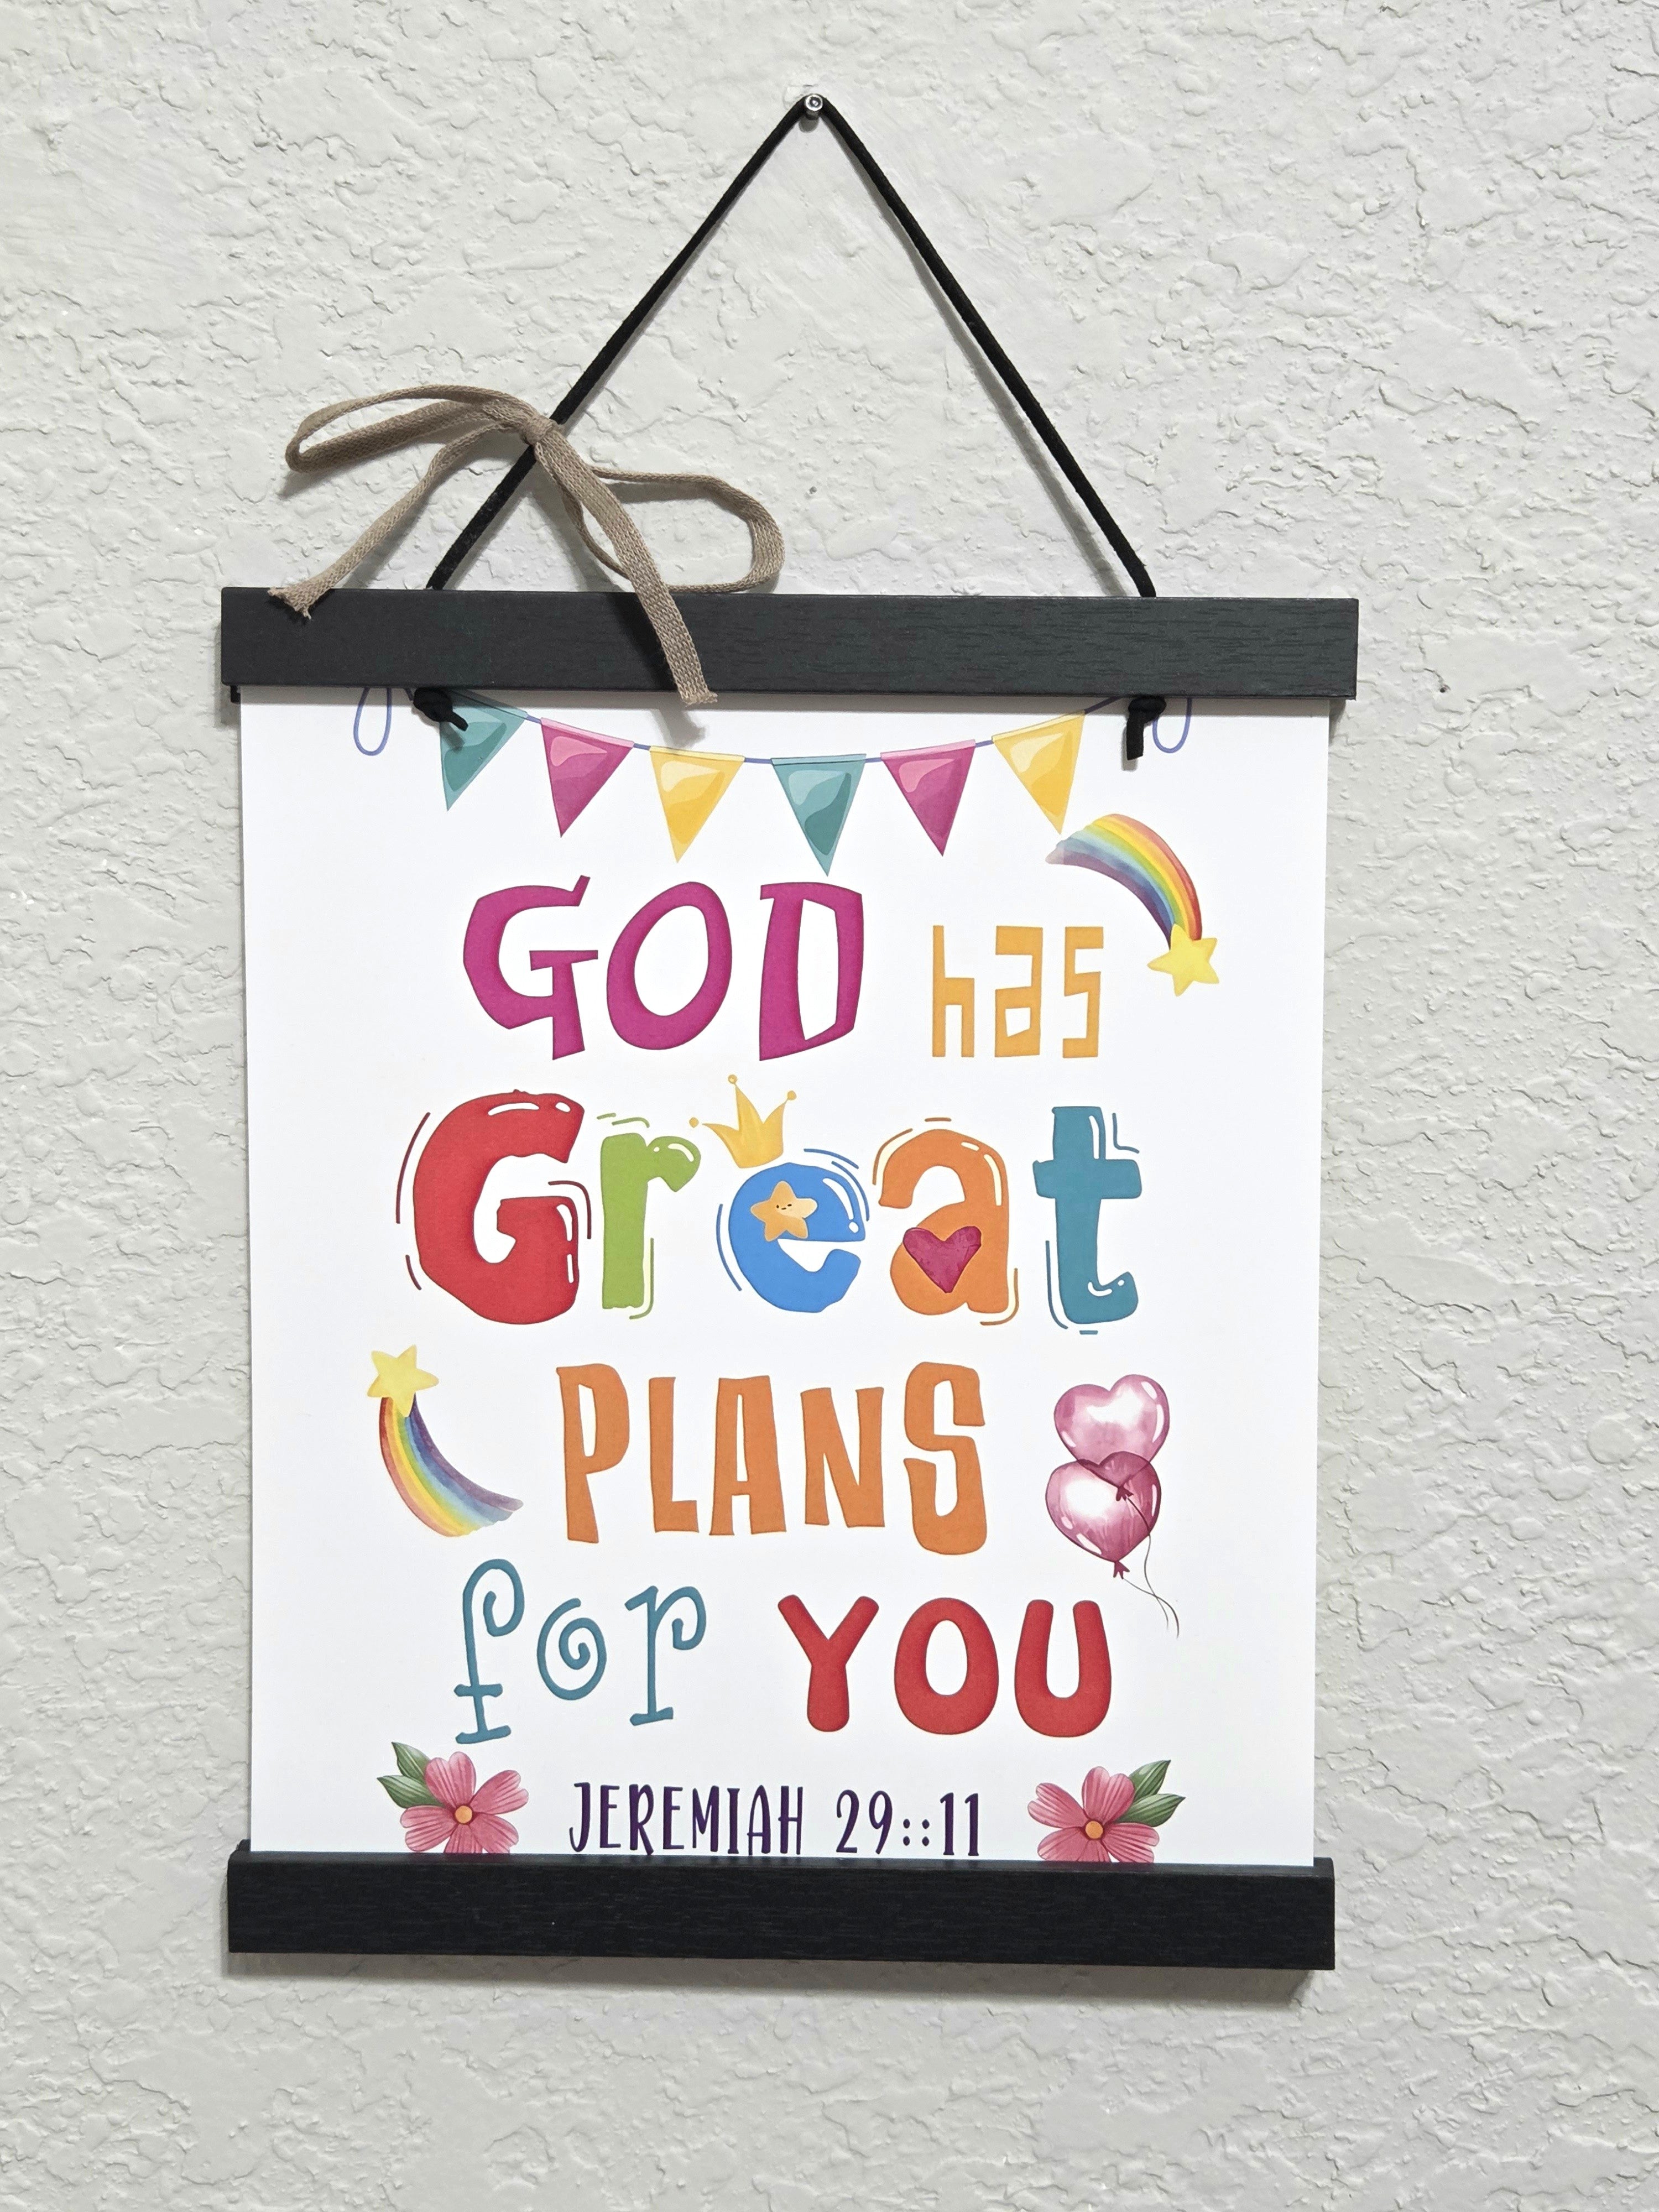 GOD has
Great
PLANS
for YOU
JEREMIAH 29::11